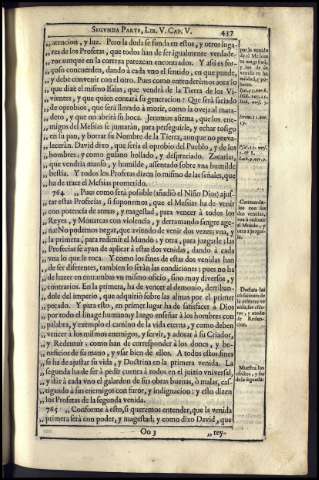 SEGVNDA PARTE, LIB. V. CAP. V.
437
„ atencion, y luz. Pero la duda se funda en estos, y otros lugares
„ de los Profetas, que todos han de ser igualmente verdaderos
„ aunque en la corteza parezcan encontrados. Y assi es forçoso
„ concuerden, dando à cada vno el sentido, en que puede,
„ y debe convenir con el otro. Pues como entenderémos aora lo
„ que dize el mismo Isaias, que vendrá de la Tierra de los Vivientes,
„ y que quien contará su generacion: Que será saciado
„ de oprobios, que será llevado à morir, como la oveja al matadero,
„ y que no abrirá su boca. Jeremias afirma, que los enemigos
„ del Mesias se juntarán, para perseguirle, y echar tosigo
„ en su pan, y borrar su Nombre de la Tierra, aunque no prevalecerán.
„ David dixo, que seria el oprobio del Pueblo, y de los
„ hombres: y como gusano hollado, y despreciado. Zacarias,
„ que vendria manso, y humilde, assentado sobre vna humilde
„ bestia. Y todos los Profetas dizen lo mismo de las señales, que
„ ha de traer el Mesias prometido.
764 „ Pues como será possible (añadiò el Niño Dios) ajustar
„ estas Profecias, si suponemos, que el Mesias ha de venir
„ con potencia de armas, y magestad, para vencer à todos los
„ Reyes, y Monarcas con violencia, y derramando sangre agena?
„ No podemos negar, que aviendo de venir dos vezes; vna, y
„ la primera, para redimir el Mundo; y otra, para juzgarle; las
„ Profecias se ayan de aplicar à estas dos venidas, dando à cada
„ vna lo que le toca. Y como los fines de estas dos venidas han
„ de ser diferentes, tambien lo serán las condiciones; pues no ha
„ de hazer en entrambas vn mismo oficio, sino muy diversos, y
„ contrarios. En la primera, ha de vencer al demonio, derribandole
„ del imperio, que adquiriò sobre las almas por el primer
„ pecado. Y para esto, en primer lugar ha de satisfacer à Dios
„ por todo el linage humano; y luego enseñar à los hombres con
„ palabra, y exemplo el camino de la vida eterna, y como deben
„ vencer à los mismos enemigos, y servir, y adorar à su Criador,
„ y Redentor: como han de corresponder à los dones, y beneficios
„ de su mano, y vsar bien de ellos. A todos estos fines
„ se ha de ajustar su vida, y Doctrina en la primera venida. La
„ segunda ha de ser à pedir cuenta à todos en el juizio vniversal,
„ y dàr à cada vno el galardon de sus obras buenas, ò malas, castigando
„ à sus enemigos con furor, è indignacion: y esto dizen
„ los Profetas de la segunda venida.
765 „ Conforme à esto, si queremos entender, que la venida
„ primera será con poder, y magestad; y como dixo David, que
Oo 3
„ rey-